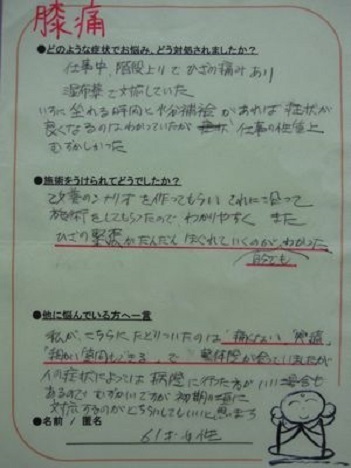 膝痛
●どのような症状でお悩み、どう対処されましたか？
仕事中、階段上りでひざの痛みあり
湿布薬で対応していた
に坐れる時間と水分補給があれば症状が
良くなるのはわかっていたが 仕事の性質上
むずかしかった
●施術をうけられてどうでしたか？
改善のシナリオを作ってもらい それに沿って
施術をしてもらったので、わかりやすく また
ひざの緊張がだんだん ほぐれていくのが、わかった
自分でも
●他に悩んでいる方へ一言
私が、こちらに、たどりついたのは「痛くない」
で 整体院が
人の症状によっては病院に行った方がいい場合も
あるので むずかしいですが 初期の頃に
対応するのがどちらにしてもいいと思います
●名前 / 匿名
61才 女性